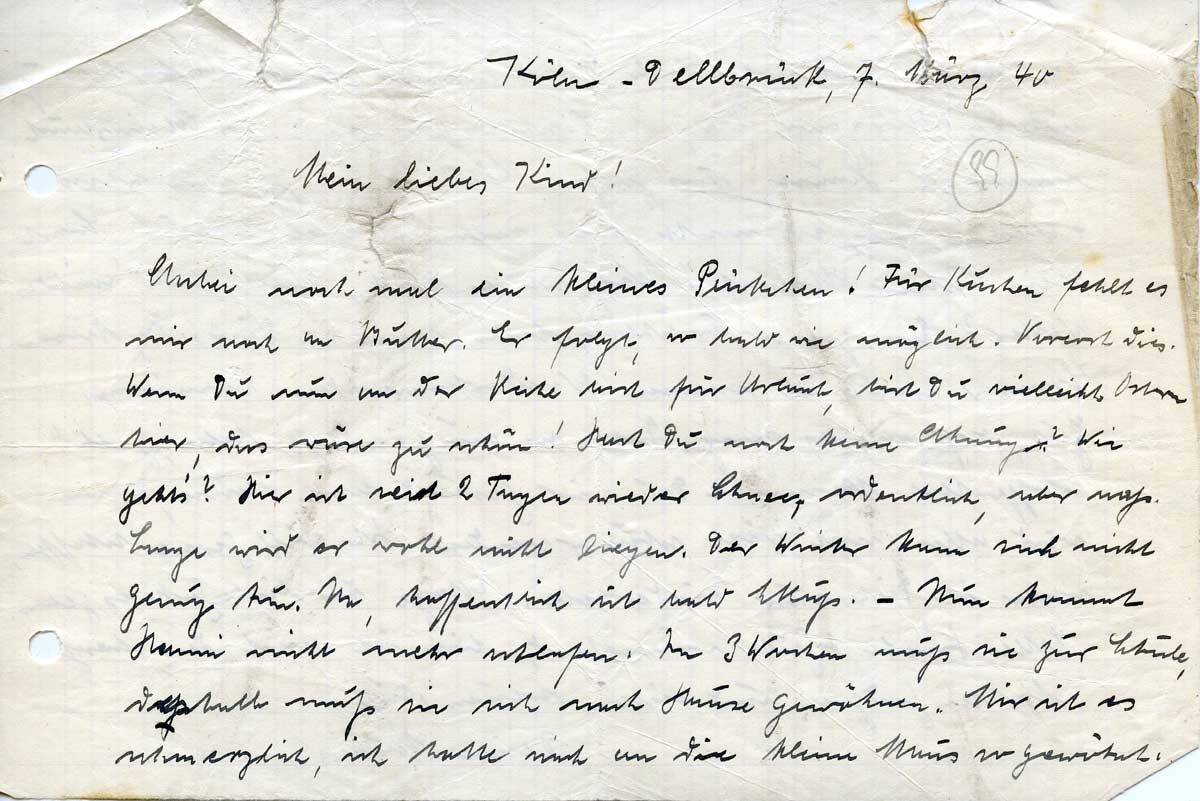 Köln - Dellbrück, 7. März 40
99
Mein liebes Kind!
Anbei noch mal ein kleines Päckchen! Für Kuchen fehlt es
mir noch an Butter. Er folgt, so bald wie möglich. Vorerst dies.
Wenn Du nun an der Reihe bist für Urlaub, bist Du vielleicht Ostern
hier, das wäre zu schön! Hast Du noch keine Ahnung? Wie
geht's? Hier ist seid 2 Tagen wieder Schnee, ordentlich, aber naß.
Lange wird er wohl nicht liegen. Der Winter kann sich nicht
genug tun. Na, hoffentlich ist bald Schluß. - Nun kommt
Hanni nicht mehr schlafen. In 3 Wochen muß sie zur Schule,
deshalb muß sie sich nach Hause gewöhnen. Mir ist es
schmerzlich, ich hatte mich an die kleine Maus so gewöhnt.